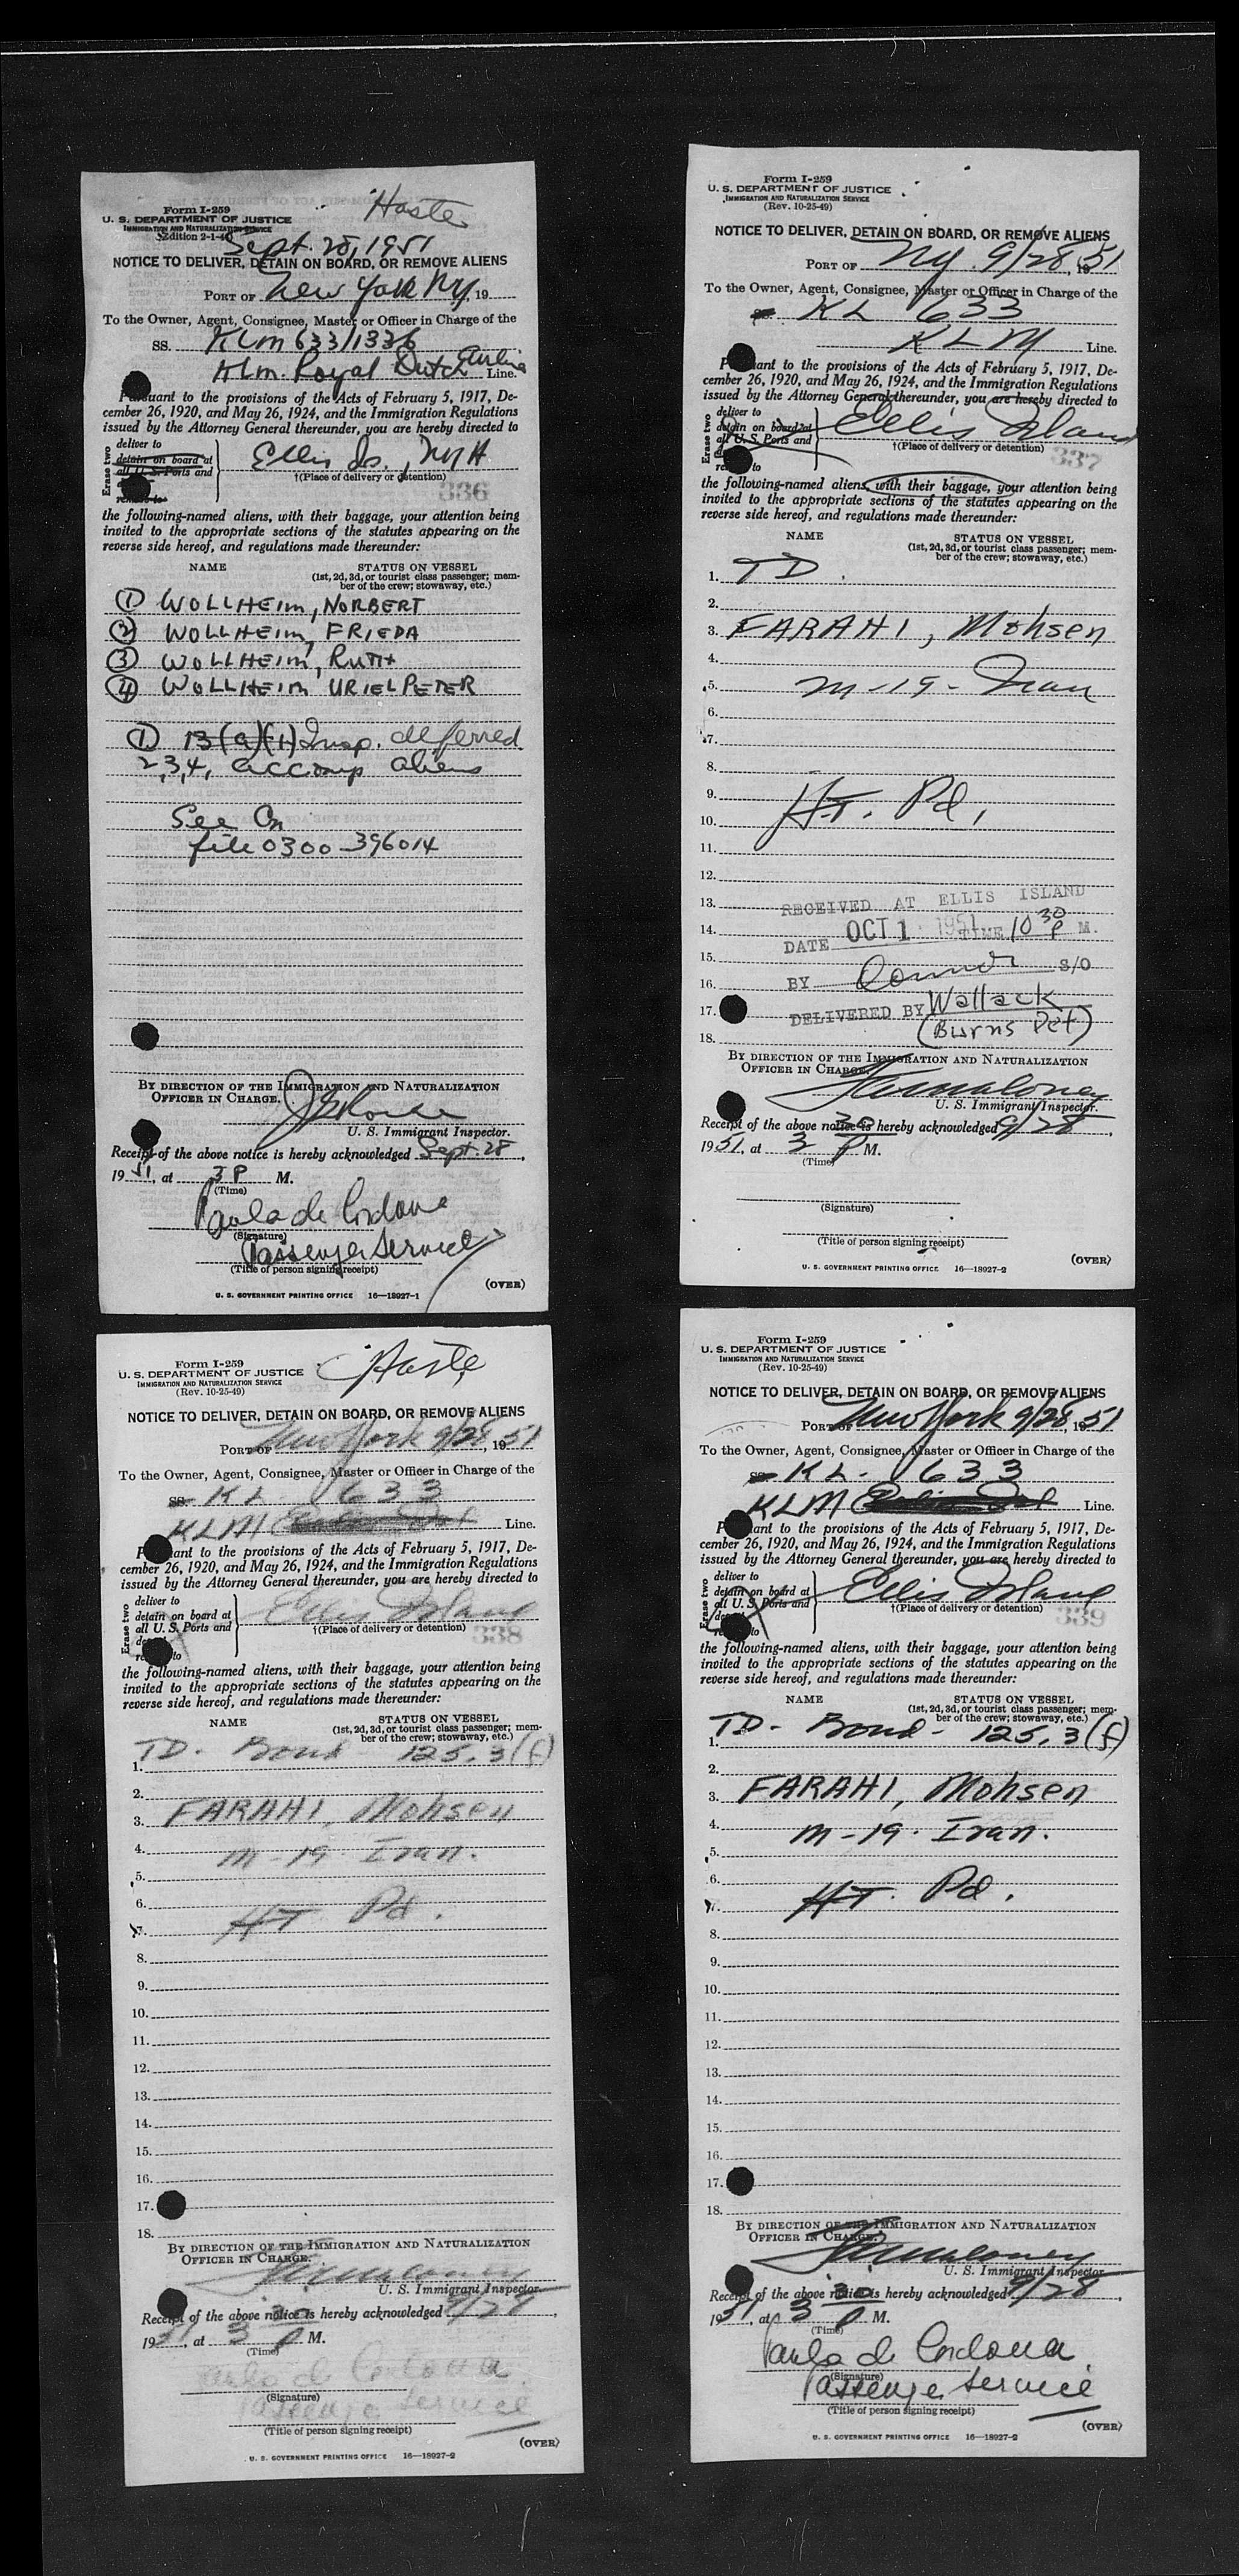 Haste
Form I-259
U. S. DEPARTMENT OF JUSTICE
IMMIGRATION AND NATURALIZATION SERVICE
Edition 2-1-40
Sept. 28, 1951
NOTICE TO DELIVER, DETAIN ON BOARD, OR REMOVE ALIENS
PORT OF New York NY, 19
To the Owner, Agent, Consignee, Master or Officer in Charge of the
SS. KLM 633/1336
KLM. Royal Dutch Airline Line.
Pursuant to the provisions of the Acts of February 5, 1917, De-
cember 26, 1920, and May 26, 1924, and the Immigration Regulations
issued by the Attorney General thereunder, you are hereby directed to
Erase two
deliver to
detain on board at
all U. S. Ports and
remove to
Ellis Is., NYH
†(Place of delivery or detention)
336
the following-named aliens, with their baggage, your attention being
invited to the appropriate sections of the statutes appearing on the
reverse side hereof, and regulations made thereunder:
NAME STATUS ON VESSEL
(1st, 2d, 3d, or tourist class passenger; mem-
ber of the crew; stowaway, etc.)
① WOLLHEIM, NORBERT
② WOLLHEIM, FRIEDA
③ WOLLHEIM, RUTH
④ WOLLHEIM URIEL PETER
① 13(a)(1) Insp. deferred
2,3,4, accomp aliens
See On
file 0300-396014
BY DIRECTION OF THE IMMIGRATION AND NATURALIZATION
OFFICER IN CHARGE.
U. S. Immigrant Inspector.
Receipt of the above notice is hereby acknowledged Sept. 28,
1951, at 3 P M.
(Time)
Paula de Cordova
(Signature)
Passenger Service
(Title of person signing receipt)
(OVER)
U. S. GOVERNMENT PRINTING OFFICE 16—18927-1
Form I-259
U. S. DEPARTMENT OF JUSTICE
IMMIGRATION AND NATURALIZATION SERVICE
(Rev. 10-25-49)
NOTICE TO DELIVER, DETAIN ON BOARD, OR REMOVE ALIENS
PORT OF NY. 9/28, 1951
To the Owner, Agent, Consignee, Master or Officer in Charge of the
SS. KL 633
KLM Line.
Pursuant to the provisions of the Acts of February 5, 1917, De-
cember 26, 1920, and May 26, 1924, and the Immigration Regulations
issued by the Attorney General thereunder, you are hereby directed to
Erase two
deliver to
detain on board at
all U. S. Ports and
Ellis Island
†(Place of delivery or detention)
337
the following-named aliens, with their baggage, your attention being
invited to the appropriate sections of the statutes appearing on the
reverse side hereof, and regulations made thereunder:
NAME STATUS ON VESSEL
(1st, 2d, 3d, or tourist class passenger; mem-
ber of the crew; stowaway, etc.)
1. TD.
2.
3. FARAHI, Mohsen
4.
5. M-19- Iran
6.
7.
8.
9.
10. HT. Pd.
11.
12.
13. RECEIVED AT ELLIS ISLAND
14. DATE OCT 1 1951 TIME 10 30 P M.
15.
16. BY Connor S/O
17. DELIVERED BY Wallack
18. (Burns Det)
BY DIRECTION OF THE IMMIGRATION AND NATURALIZATION
OFFICER IN CHARGE.
U. S. Immigrant Inspector.
Receipt of the above notice is hereby acknowledged 9/28,
1951, at 3 30 P M.
(Time)
(Signature)
(Title of person signing receipt)
(OVER)
U. S. GOVERNMENT PRINTING OFFICE 16—18927-2
Haste
Form I-259
U. S. DEPARTMENT OF JUSTICE
IMMIGRATION AND NATURALIZATION SERVICE
(Rev. 10-25-49)
NOTICE TO DELIVER, DETAIN ON BOARD, OR REMOVE ALIENS
PORT OF New York 9/28, 1951
To the Owner, Agent, Consignee, Master or Officer in Charge of the
SS. KL 633
KLM Line.
Pursuant to the provisions of the Acts of February 5, 1917, De-
cember 26, 1920, and May 26, 1924, and the Immigration Regulations
issued by the Attorney General thereunder, you are hereby directed to
Erase two
deliver to
detain on board at
all U. S. Ports and
Ellis Island
†(Place of delivery or detention)
338
the following-named aliens, with their baggage, your attention being
invited to the appropriate sections of the statutes appearing on the
reverse side hereof, and regulations made thereunder:
NAME STATUS ON VESSEL
(1st, 2d, 3d, or tourist class passenger; mem-
ber of the crew; stowaway, etc.)
1. TD. Bond - 125.3(f)
2.
3. FARAHI, Mohsen
4. M-19. Iran.
5.
6.
7. HT Pd.
8.
9.
10.
11.
12.
13.
14.
15.
16.
17.
18.
BY DIRECTION OF THE IMMIGRATION AND NATURALIZATION
OFFICER IN CHARGE.
U. S. Immigrant Inspector.
Receipt of the above notice is hereby acknowledged 9/28,
1951, at 3 30 P M.
(Time)
Paula de Cordova
(Signature)
Passenger Service
(Title of person signing receipt)
(OVER)
U. S. GOVERNMENT PRINTING OFFICE 16—18927-2
Form I-259
U. S. DEPARTMENT OF JUSTICE
IMMIGRATION AND NATURALIZATION SERVICE
(Rev. 10-25-49)
NOTICE TO DELIVER, DETAIN ON BOARD, OR REMOVE ALIENS
PORT OF New York 9/28, 1951
To the Owner, Agent, Consignee, Master or Officer in Charge of the
SS. KL. 633
KLM Line.
Pursuant to the provisions of the Acts of February 5, 1917, De-
cember 26, 1920, and May 26, 1924, and the Immigration Regulations
issued by the Attorney General thereunder, you are hereby directed to
Erase two
deliver to
detain on board at
all U. S. Ports and
Ellis Island
†(Place of delivery or detention)
339
the following-named aliens, with their baggage, your attention being
invited to the appropriate sections of the statutes appearing on the
reverse side hereof, and regulations made thereunder:
NAME STATUS ON VESSEL
(1st, 2d, 3d, or tourist class passenger; mem-
ber of the crew; stowaway, etc.)
1. TD- Bond - 125.3(f)
2.
3. FARAHI, Mohsen
4. M-19. Iran.
5.
6.
7. HT. Pd.
8.
9.
10.
11.
12.
13.
14.
15.
16.
17.
18.
BY DIRECTION OF THE IMMIGRATION AND NATURALIZATION
OFFICER IN CHARGE.
U. S. Immigrant Inspector.
Receipt of the above notice is hereby acknowledged 9/28,
1951, at 3 30 P M.
(Time)
Paula de Cordova
(Signature)
Passenger Service
(Title of person signing receipt)
(OVER)
U. S. GOVERNMENT PRINTING OFFICE 16—18927-2